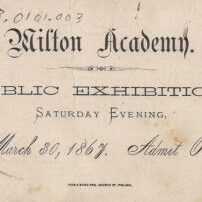 .0101.003
Milton Academy.
BLIC EXHIBITIO
SATURDAY EVENING,
March 30, 1867. Admit O